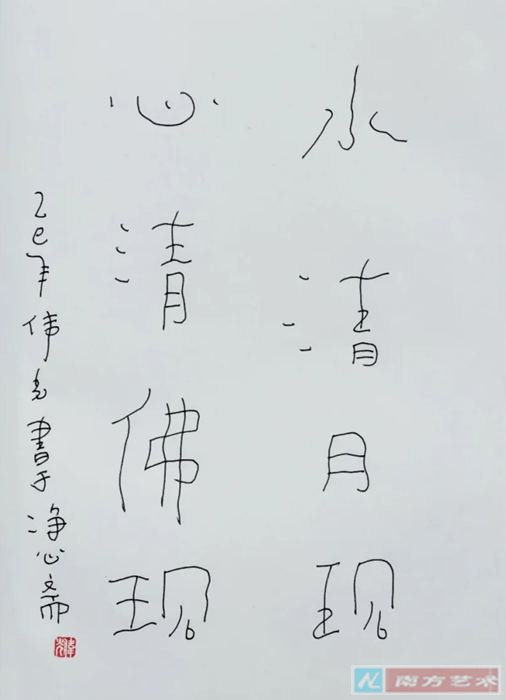 水清月现
心清佛现
乙巳年伟光書于净心斋
南方艺术